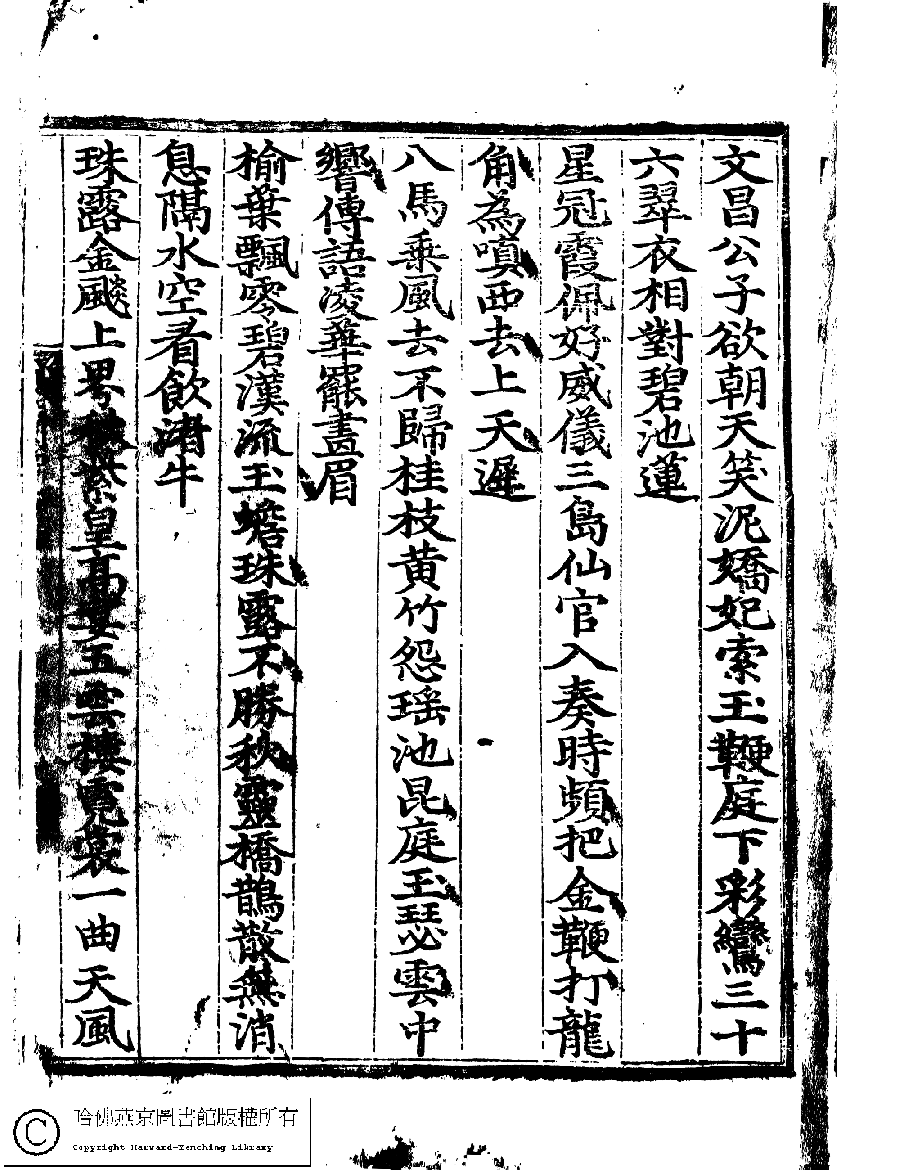 文昌公子欲朝天笑泥嬌妃索玉鞭庭下彩鸞三十
六翠衣相對碧池蓮
星冠霞佩好威儀三島仙官入奏時頻把金鞭打龍
角為嗔西去上天遲
八馬乘風去不歸桂枝黄竹怨瑶池昆庭玉瑟雲中
響傳語凌華罷畫眉
榆葉飄零碧漢流玉蟾珠露不勝秋靈橋鵲散無消
息隔水空看飲渚牛
珠露金颷上界秋紫皇髙宴五雲樓霓裳一曲天風
哈佛燕京圖書館版權所有
Copyright Harvard-Yenching Library